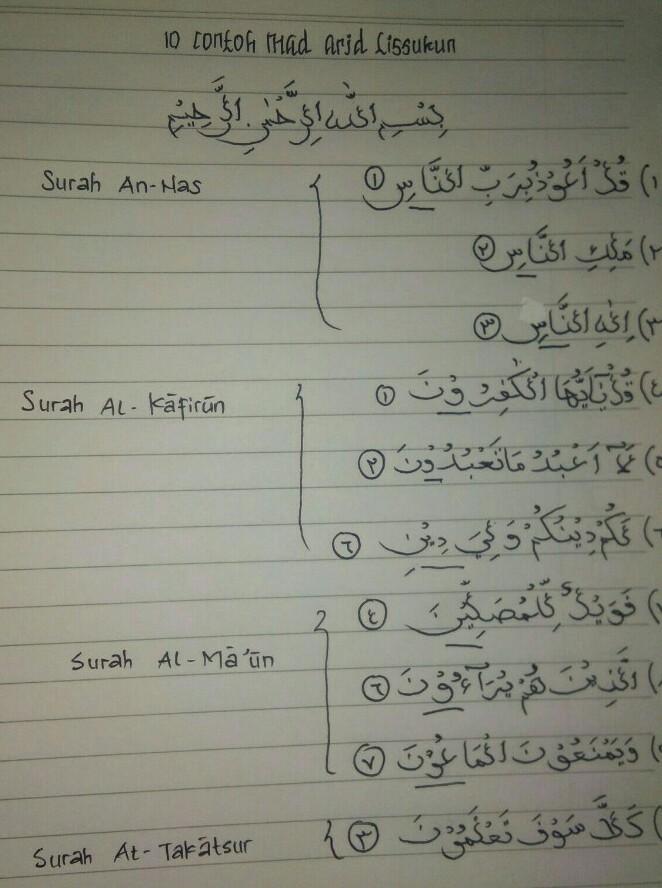 10 contoh Mad Arid Lissukun
بِسْمِ اللّٰهِ الرَّحْمٰنِ الرَّحِيْمِ
Surah An-Nas
١) قُلْ اَعُوْذُ بِرَبِّ النَّاسِ ①
٢) مَلِكِ النَّاسِ ②
٣) اِلٰهِ النَّاسِ ③
Surah Al-Kāfirūn
٤) قُلْ يٰٓاَيُّهَا الْكٰفِرُوْنَ ①
٥) لَآ اَعْبُدُ مَا تَعْبُدُوْنَ ②
٦) لَكُمْ دِيْنُكُمْ وَلِيَ دِيْنِ ⑥
Surah Al-Mā'ūn
٧) فَوَيْلٌ لِّلْمُصَلِّيْنَ ④
) الَّذِيْنَ هُمْ يُرَآءُوْنَ ⑥
) وَيَمْنَعُوْنَ الْمَاعُوْنَ ⑦
Surah At-Takātsur
) كَلَّا سَوْفَ تَعْلَمُوْنَ ③